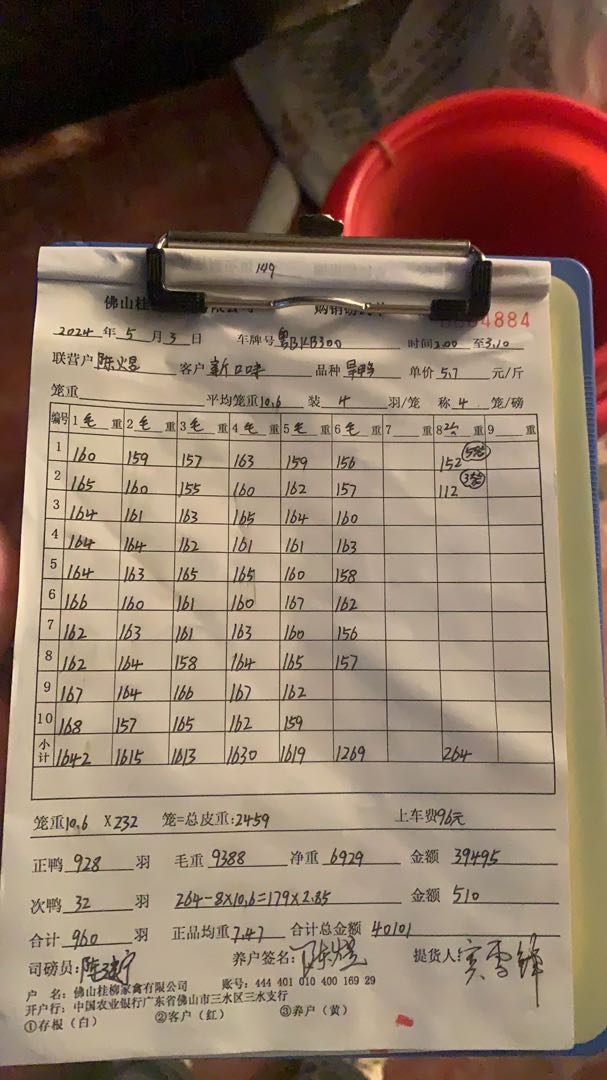 149
佛山桂
购销
0004884
2024 年 5 月 3 日 车牌号 粤BKB300 时间 2.00 至 3.10
联营户 陈煜 客户 新口味 品种 旱鸭 单价 5.7 元/斤
笼重 平均笼重 10.6 装 4 羽/笼 称 4 笼/磅
编号 1 毛 重 2 毛 重 3 毛 重 4 毛 重 5 毛 重 6 毛 重 7 重 8 重 9 重
1 160 159 157 163 159 156 152
2 165 160 155 160 162 157 112
3 164 161 163 165 164 160
4 164 164 162 161 161 163
5 164 163 165 165 160 158
6 166 160 161 160 167 162
7 162 163 161 163 160 156
8 162 164 158 164 165 157
9 167 164 166 167 162
10 168 157 165 162 159
小计 1642 1615 1613 1630 1619 1269 264
笼重 10.6 X 232 笼=总皮重: 2459 上车费 96元
正鸭 928 羽 毛重 9388 净重 6929 金额 39495
次鸭 32 羽 264-8X10.6=179X2.85 金额 510
合计 960 羽 正品均重 7.47 合计总金额 40101
司磅员: 养户签名: 陈煜 提货人:
户 名: 佛山桂柳家禽有限公司 账号: 444 401 010 400 169 29
开户行: 中国农业银行广东省佛山市三水区三水支行
①存根（白） ②客户（红） ③养户（黄）